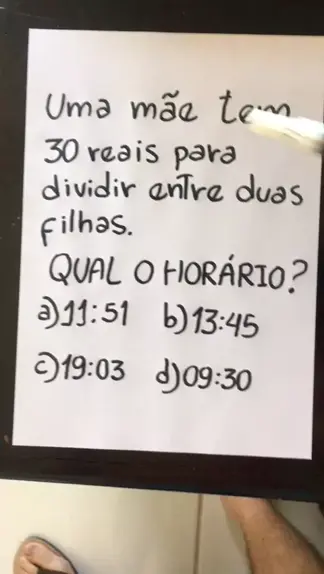 Uma mãe tem
30 reais para
dividir entre duas
filhas.
QUAL O HORÁRIO?
a) 11:51 b) 13:45
c) 19:03 d) 09:30